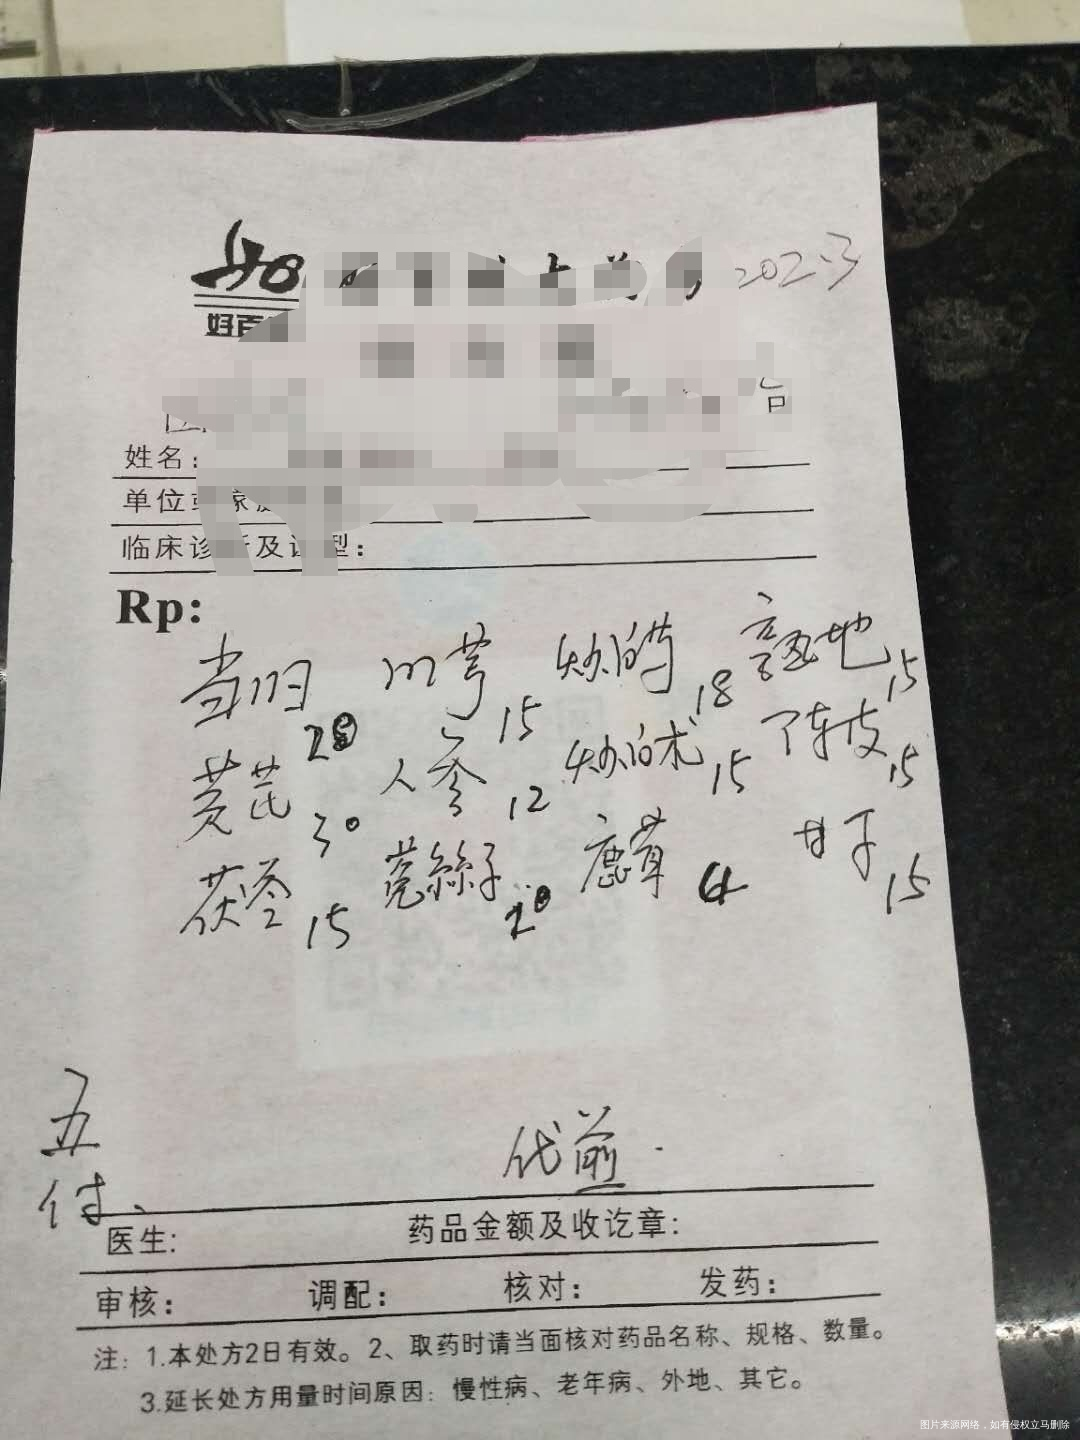 2023
好百
姓名：
单位或家庭
临床诊断及证型：
Rp:
当归 20 川芎 15 炒白芍 18 熟地 15
黄芪 30 人参 12 炒白术 15 陈皮 15
茯苓 15 菟絲子 20 鹿茸 4 甘干 15
五付、
代煎.
医生: 药品金额及收讫章:
审核： 调配： 核对： 发药：
注：1.本处方2日有效。2、取药时请当面核对药品名称、规格、数量。
3.延长处方用量时间原因：慢性病、老年病、外地、其它。
图片来源网络，如有侵权立马删除